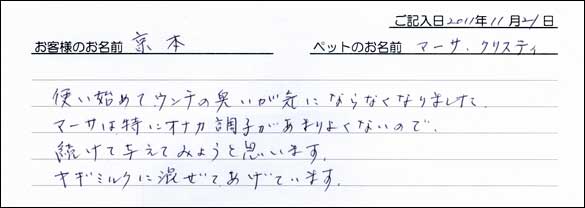 ご記入日2011年11月21日
お客様のお名前 京本 ペットのお名前 マーサ.クリスティ
使い始めて、ウンテの臭いが気にならなくなりました。
マーサは特にオナカ調子があまりよくないので、
続けて与えてみようと思います。
ヤギミルクに混ぜてあげています。